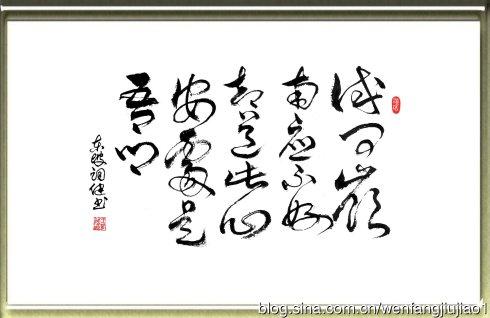 试问岭
南应不好
却道此心
安處是
吾乡
东坡词 书
blog.sina.com.cn/wenfangjiujiao1